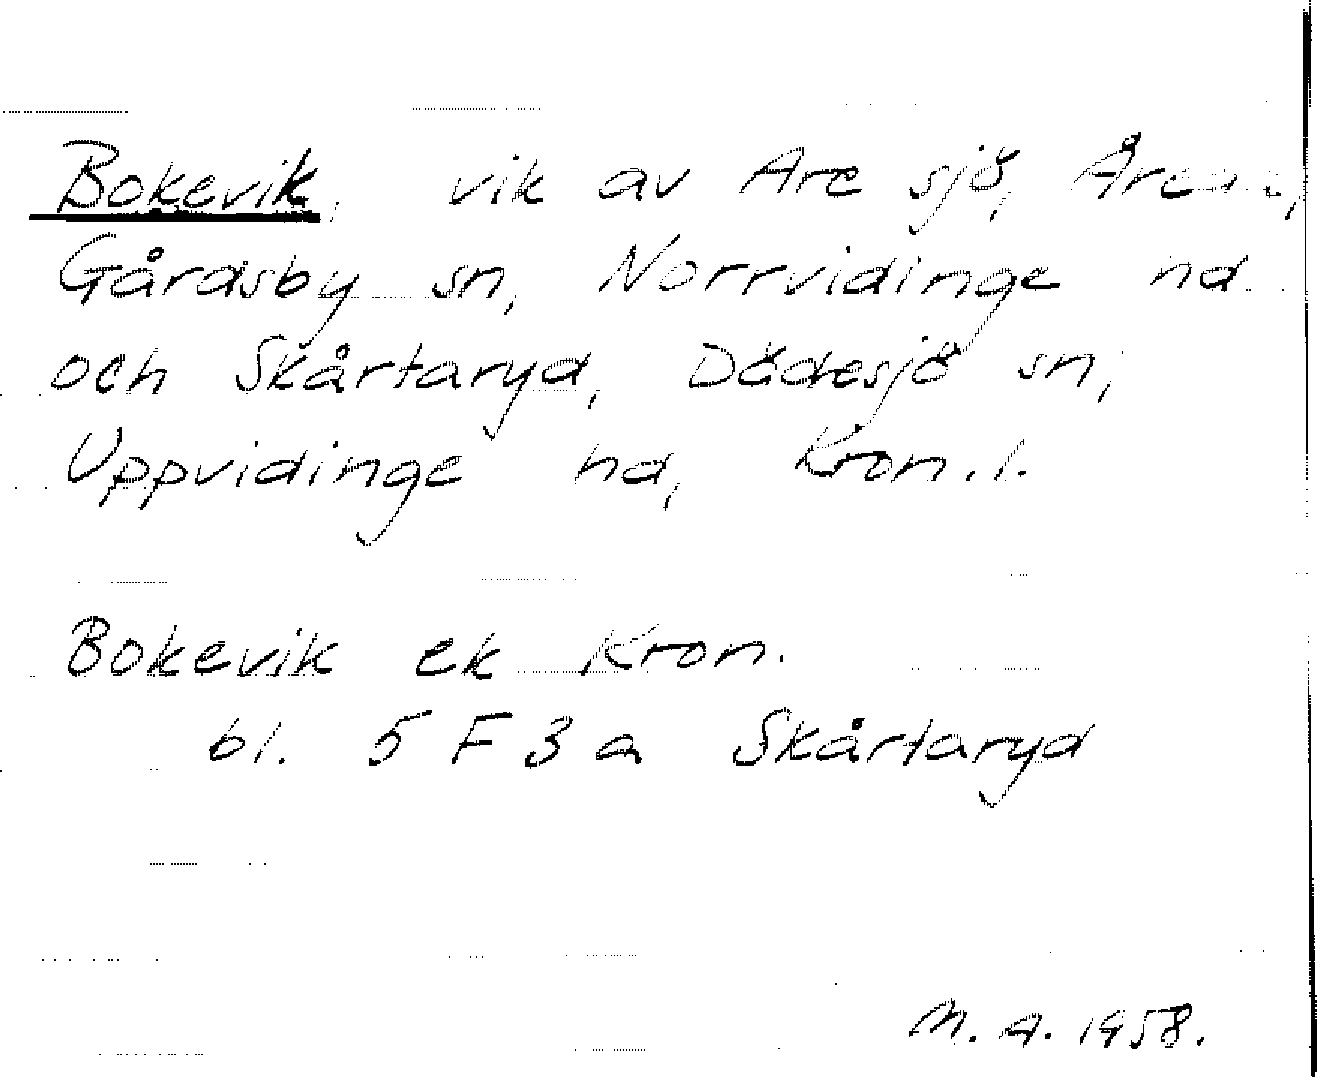 Bokevik, vik av Åre sjö,
Gårdsby sn, Norrvidinge hd
och Skårtaryd, Dädesjö sn,
Uppvidinge hd, Kron. l.
Bokevik ek Kron.
bl. 5 F 3 a Skårtaryd
M. A. 1958.